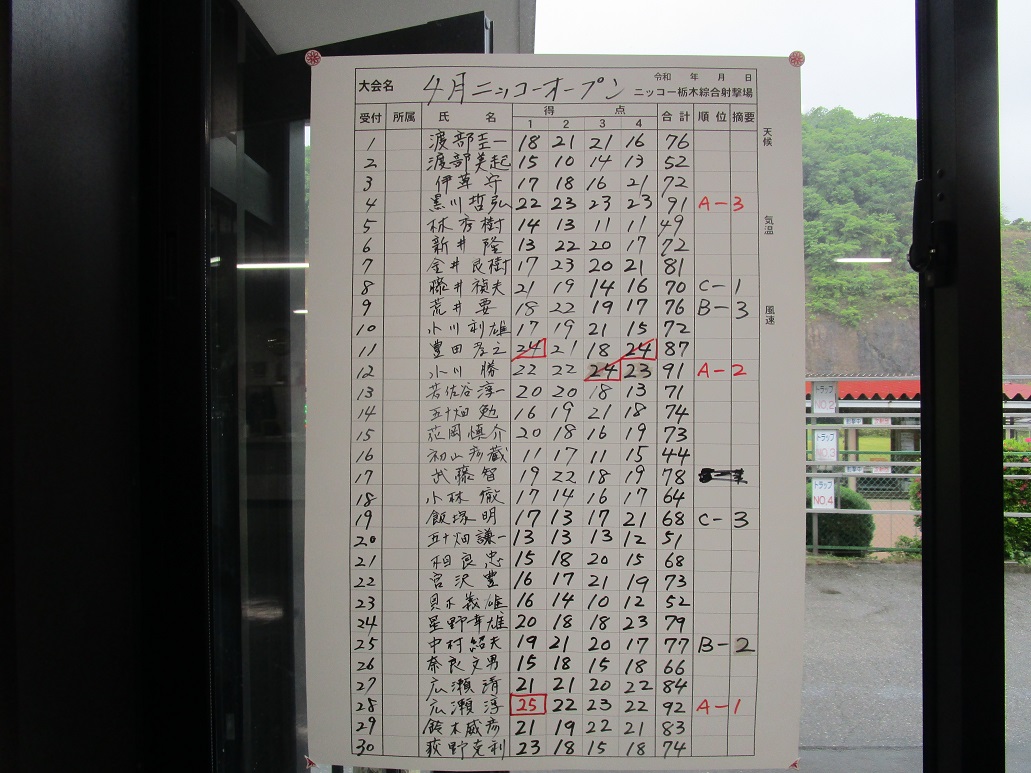 大会名 4月ニッコーオープン 令和 年 月 日
ニッコー栃木綜合射撃場
受付 所属 氏 名 得 点 合計 順位 摘要
1 2 3 4
1 渡部圭一 18 21 21 16 76
2 渡部美起 15 10 14 13 52
3 伊草守 17 18 16 21 72
4 黒川哲弘 22 23 23 23 91 A-3
5 林秀樹 14 13 11 11 49
6 新井隆 13 22 20 17 72
7 金井良樹 17 23 20 21 81
8 藤井禎夫 21 19 14 16 70 C-1
9 荒井要 18 22 19 17 76 B-3
10 小川利雄 17 19 21 15 72
11 豊田 24 21 18 24 87
12 小川勝 22 22 24 23 91 A-2
13 若佐谷淳一 20 20 18 13 71
14 五十畑勉 16 19 21 18 74
15 花岡慎介 20 18 16 19 73
16 初山彦蔵 11 17 11 15 44
17 武藤智 19 22 18 19 78
18 小林徹 17 14 16 17 64
19 飯塚明 17 13 17 21 68 C-3
20 五十畑謙一 13 13 13 12 51
21 相良忠 15 18 20 15 68
22 宮沢豊 16 17 21 19 73
23 義雄 16 14 10 12 52
24 星野幸雄 20 18 18 23 79
25 中村紹夫 19 21 20 17 77 B-2
26 奈良文男 15 18 15 18 66
27 広瀬清 21 21 20 22 84
28 広瀬淳 25 22 23 22 92 A-1
29 鈴木威彦 21 19 22 21 83
30 荻野克利 23 18 15 18 74
天候
気温
風速
トラップ
NO.2
トラップ
NO.3
トラップ
NO.4